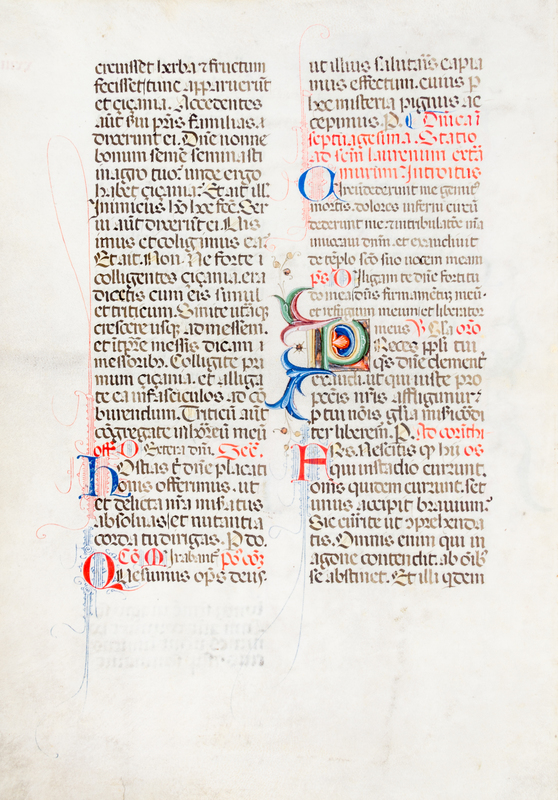 creuisset herba ⁊ fructum
fecisset tunc apparuerūt
et çiçania. Accedentes
aūt s̄ui pr̄is familias.
dixerunt ei. Dn̄e nonne
bonum semē seminasti
in agro tuo. unde ergo
habet çiçania. Et ait ill̓
Inimicus hō hoc fec̄. Ser
ui aūt dixerūt ei. Uis
imus et coligimus ea.
Et ait. Non. Ne forte
colligentes çiçania. era
dicetis cum eis simul
et triticum. Sinite utraq̄
crescere usq̄ ad messem.
et tp̄re messis dicam
messorib̄. Colligite pri
mum çiçania. et alliga
te ea ī fasciculos ad cō
burendum. Triticū aūt
cōgregate in horeū meū
off̄ Dextera dn̄i. Sec̄.
Hostias t̄ dn̄e placati
onis offerimus. ut
et delicta n̄ra mis̄ratus
absoluas et nutantia
corda tu dirigas. P. do.
Cō Mirabant̄ p̄os cōz
Quesumus op̄s deus.
ut illius salutar̄is capia
mus effectum. cuius p
hec misteria pignus ac
cepimus. P. Dn̄ica ī
septuagesima. Statio
ad scm̄ laurentium extā
murum Introitus
Circūdederunt me gemit̄
mortis. dolores inferni circū
dederunt me. ⁊ in tribulatōe m̄a
inuocaui dnm̄. et exaudiuit
de tēplo scō suo uocem meam
p̄s Diligam te dn̄e fortitu
do mea dn̄s firmamētuz meū.
et refugium meum et liberator
meus V̄ Gl̄a oro
Preces pp̄li tui
q̄s dn̄e clement̄
exaudi. ut qui iuste pro
pctīs nr̄is affligimur.
p tui nōis gl̄ia mis̄icōdi
ter liberem̄. P. Ad corīthi
Frēs. Nescitis qp hii os
qui in stadio currunt.
om̄s quidem currunt. set
unus accipit brauium.
Sic curr̄ite ut ɔprehenda
tis. Omnis enim qui in
agone contendit. ab oīb̄
se abstinet. Et illi q̄dem